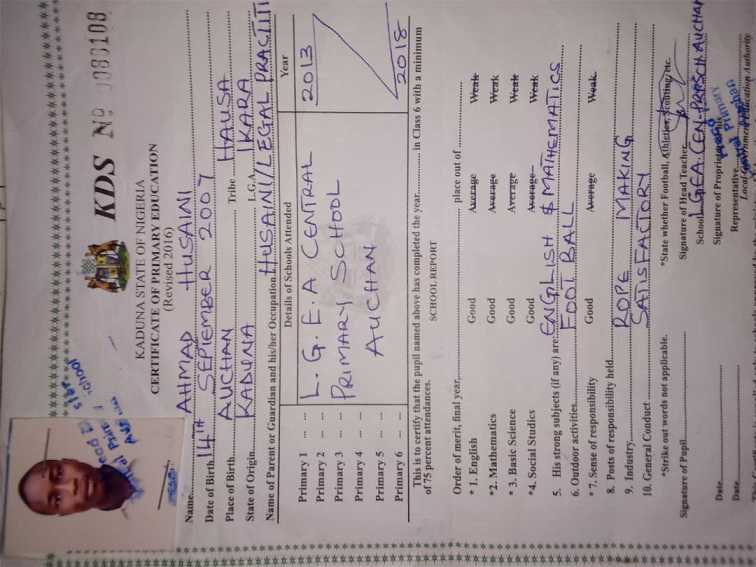 KDS Nº 0080108
KADUNA STATE OF NIGERIA
CERTIFICATE OF PRIMARY EDUCATION
(Revised 2016)
Name AHMAD HUSAINI
Date of Birth 14TH SEPTEMBER 2007
Place of Birth AUCHAN Tribe HAUSA
State of Origin KADUNA L.G.A. IKARA
Name of Parent or Guardian and his/her Occupation HUSAINI/LEGAL PRACTITI
Details of Schools Attended Year
Primary 1 ... ... L.G.E.A CENTRAL 2013
Primary 2 ... ... PRIMARY SCHOOL
Primary 3 ... ... AUCHAN
Primary 4 ... ...
Primary 5 ... ...
Primary 6 ... ... 2018
This is to certify that the pupil named above has completed the year............in Class 6 with a minimum
of 75 percent attendances.
SCHOOL REPORT
Order of merit, final year,............place out of............
* 1. English Good Average Weak
*2. Mathematics Good Average Weak
* 3. Basic Science Good Average Weak
*4. Social Studies Good Average Weak
5. His strong subjects (if any) are: ENGLISH & MATHEMATICS
6. Outdoor activities FOOT BALL
* 7. Sense of responsibility Good Average Weak
8. Posts of responsibility held
9. Industry ROPE MAKING
10. General Conduct SATISFACTORY
*Strike out words not applicable. *State whether Football, Athletics, Scouting, etc.
Signature of Pupil Signature of Head Teacher
School LGEA.CEN.PRI.SCH.AUCHAN
Date Signature of Proprietor
Date Representative